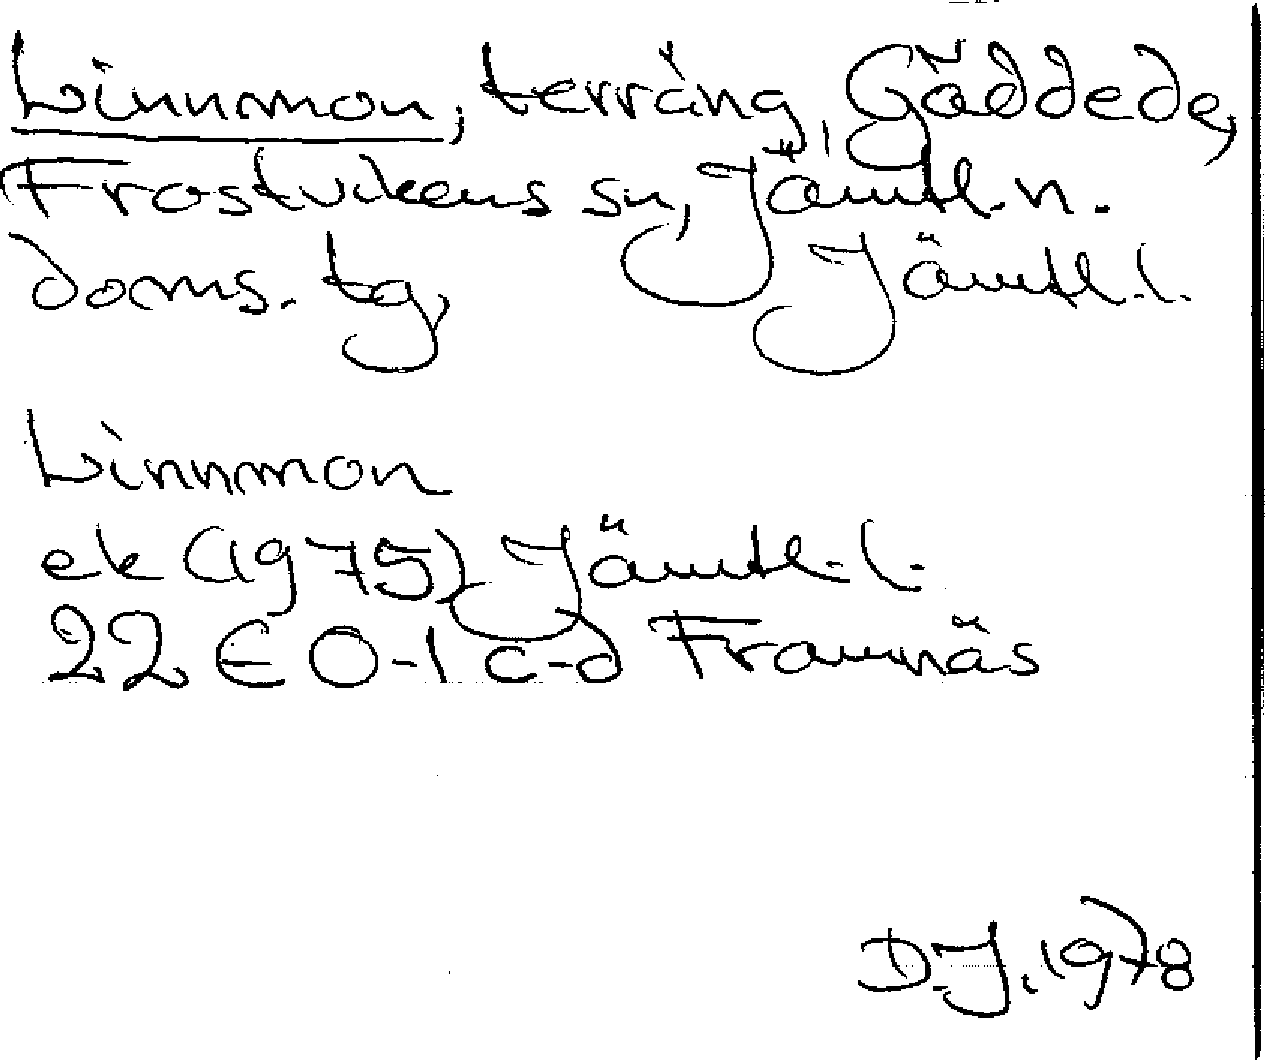 Linnmon, terräng, Gäddede,
Frostvikens sn, Jämtl. n.
doms. tg, Jämtl. l.
Linnmon
ek (1975) Jämtl. l.
22 E 0-1 c-d Framnäs
D.J. 1978